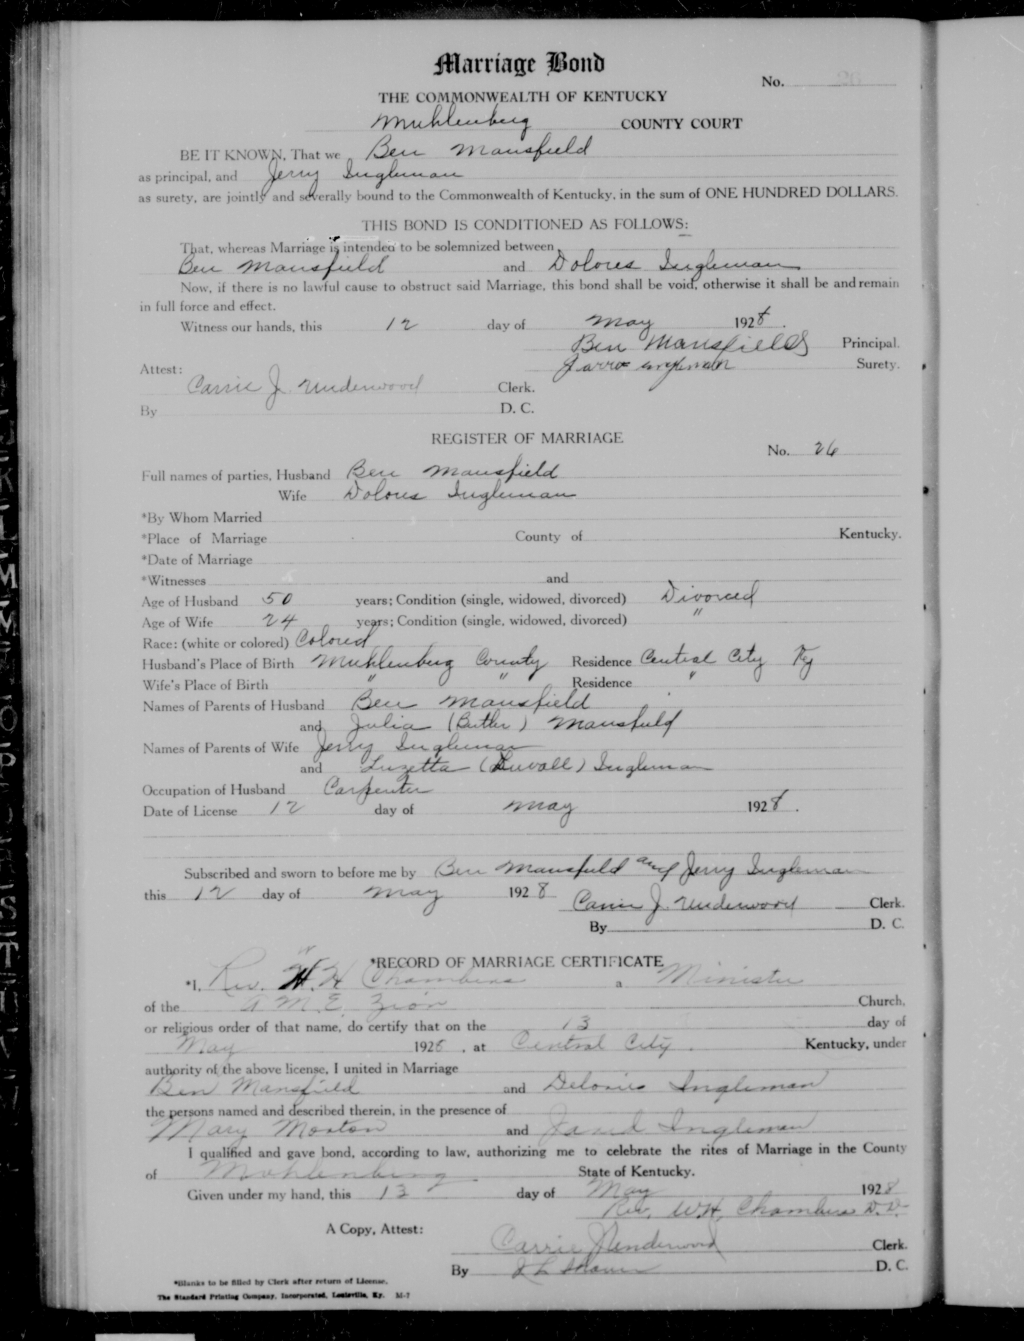 Marriage Bond
No. 26
THE COMMONWEALTH OF KENTUCKY
Muhlenberg COUNTY COURT
BE IT KNOWN, That we Ben Mansfield
as principal, and Jerry Ingleman
as surety, are jointly and severally bound to the Commonwealth of Kentucky, in the sum of ONE HUNDRED DOLLARS.
THIS BOND IS CONDITIONED AS FOLLOWS:
That, whereas Marriage is intended to be solemnized between
Ben Mansfield and Dolores Ingleman
Now, if there is no lawful cause to obstruct said Marriage, this bond shall be void, otherwise it shall be and remain
in full force and effect.
Witness our hands, this 12 day of May 1928.
Ben Mansfield Principal.
Attest: Surety.
Carrie J. Underwood Clerk.
By D. C.
REGISTER OF MARRIAGE
No. 26
Full names of parties, Husband Ben Mansfield
Wife Dolores Ingleman
*By Whom Married
*Place of Marriage County of Kentucky.
*Date of Marriage
*Witnesses and
Age of Husband 50 years; Condition (single, widowed, divorced) Divorced
Age of Wife 24 years; Condition (single, widowed, divorced) "
Race: (white or colored) Colored
Husband's Place of Birth Muhlenberg County Residence Central City Ky
Wife's Place of Birth " " Residence "
Names of Parents of Husband Ben Mansfield
and Julia (Butler) Mansfield
Names of Parents of Wife Jerry Ingleman
and Luzetta (Duvall) Ingleman
Occupation of Husband Carpenter
Date of License 12 day of May 1928.
Subscribed and sworn to before me by Ben Mansfield and Jerry Ingleman
this 12 day of May 1928
Carrie J. Underwood Clerk.
By D. C.
*RECORD OF MARRIAGE CERTIFICATE
*I, Rev. W. H Chambers a Minister
of the A M. E. Zion Church,
or religious order of that name, do certify that on the 13 day of
May 1928, at Central City. Kentucky, under
authority of the above license, I united in Marriage
Ben Mansfield and Delories Ingleman
the persons named and described therein, in the presence of
Mary Morton and Ingleman
I qualified and gave bond, according to law, authorizing me to celebrate the rites of Marriage in the County
of Muhlenberg State of Kentucky.
Given under my hand, this 13 day of May 1928
Rev. W. H. Chambers D. D.
A Copy, Attest:
Carrie J Underwood Clerk.
By D. C.
*Blanks to be filled by Clerk after return of License.
The Standard Printing Company, Incorporated, Louisville, Ky. M-7